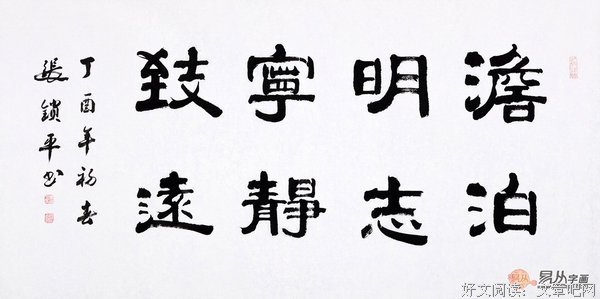 澹泊
明志
寧靜
致遠
丁酉年初春
張鎖平書
易从字画
好文阅读：文章吧网